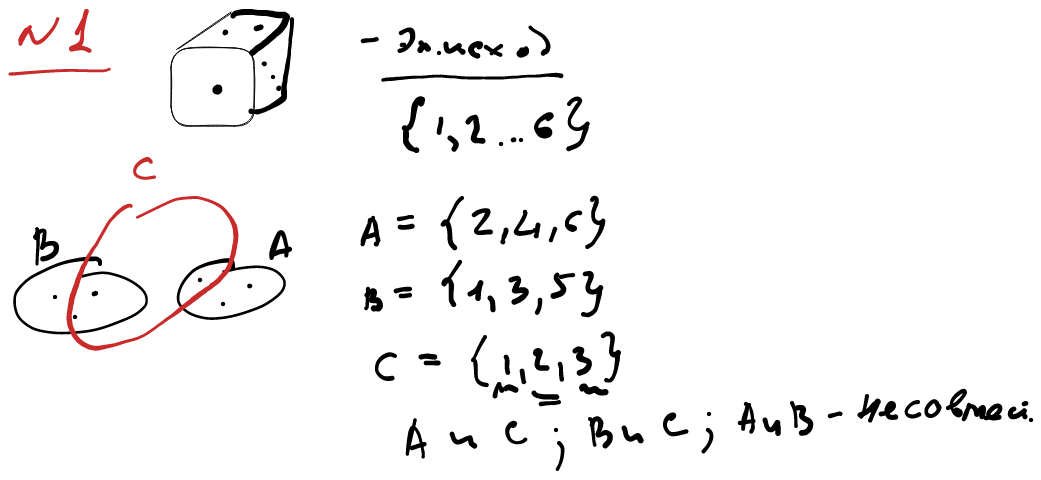 №1
- Эл. исход
{1, 2 ... 6}
C
B
A
A = {2, 4, 6}
B = {1, 3, 5}
C = {1, 2, 3}
A и C ; B и C ; A и B - несовмест.